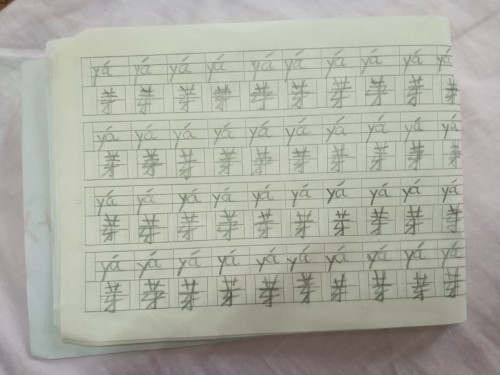 yá yá yá yá yá yá yá yá yá yá
芽 芽 芽 芽 芽 芽 芽 芽 芽 芽
yá yá yá yá yá yá yá yá yá yá
芽 芽 芽 芽 芽 芽 芽 芽 芽 芽
yá yá yá yá yá yá yá yá yá yá
芽 芽 芽 芽 芽 芽 芽 芽 芽 芽
yá yá yá yá yá yá yá yá yá yá
芽 芽 芽 芽 芽 芽 芽 芽 芽 芽